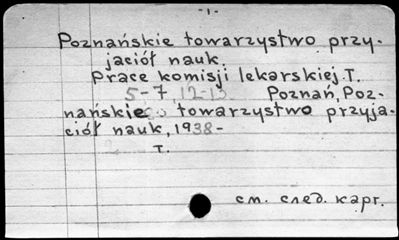 -1-
Poznańskie towarzystwo przy-
jaciół nauk.
Prace komisji lekarskiej. T.
5-7, 12-13. Poznań, Poz-
nańskiego towarzystwo przyja-
ciół nauk, 1938-
т.
см. след. карт.